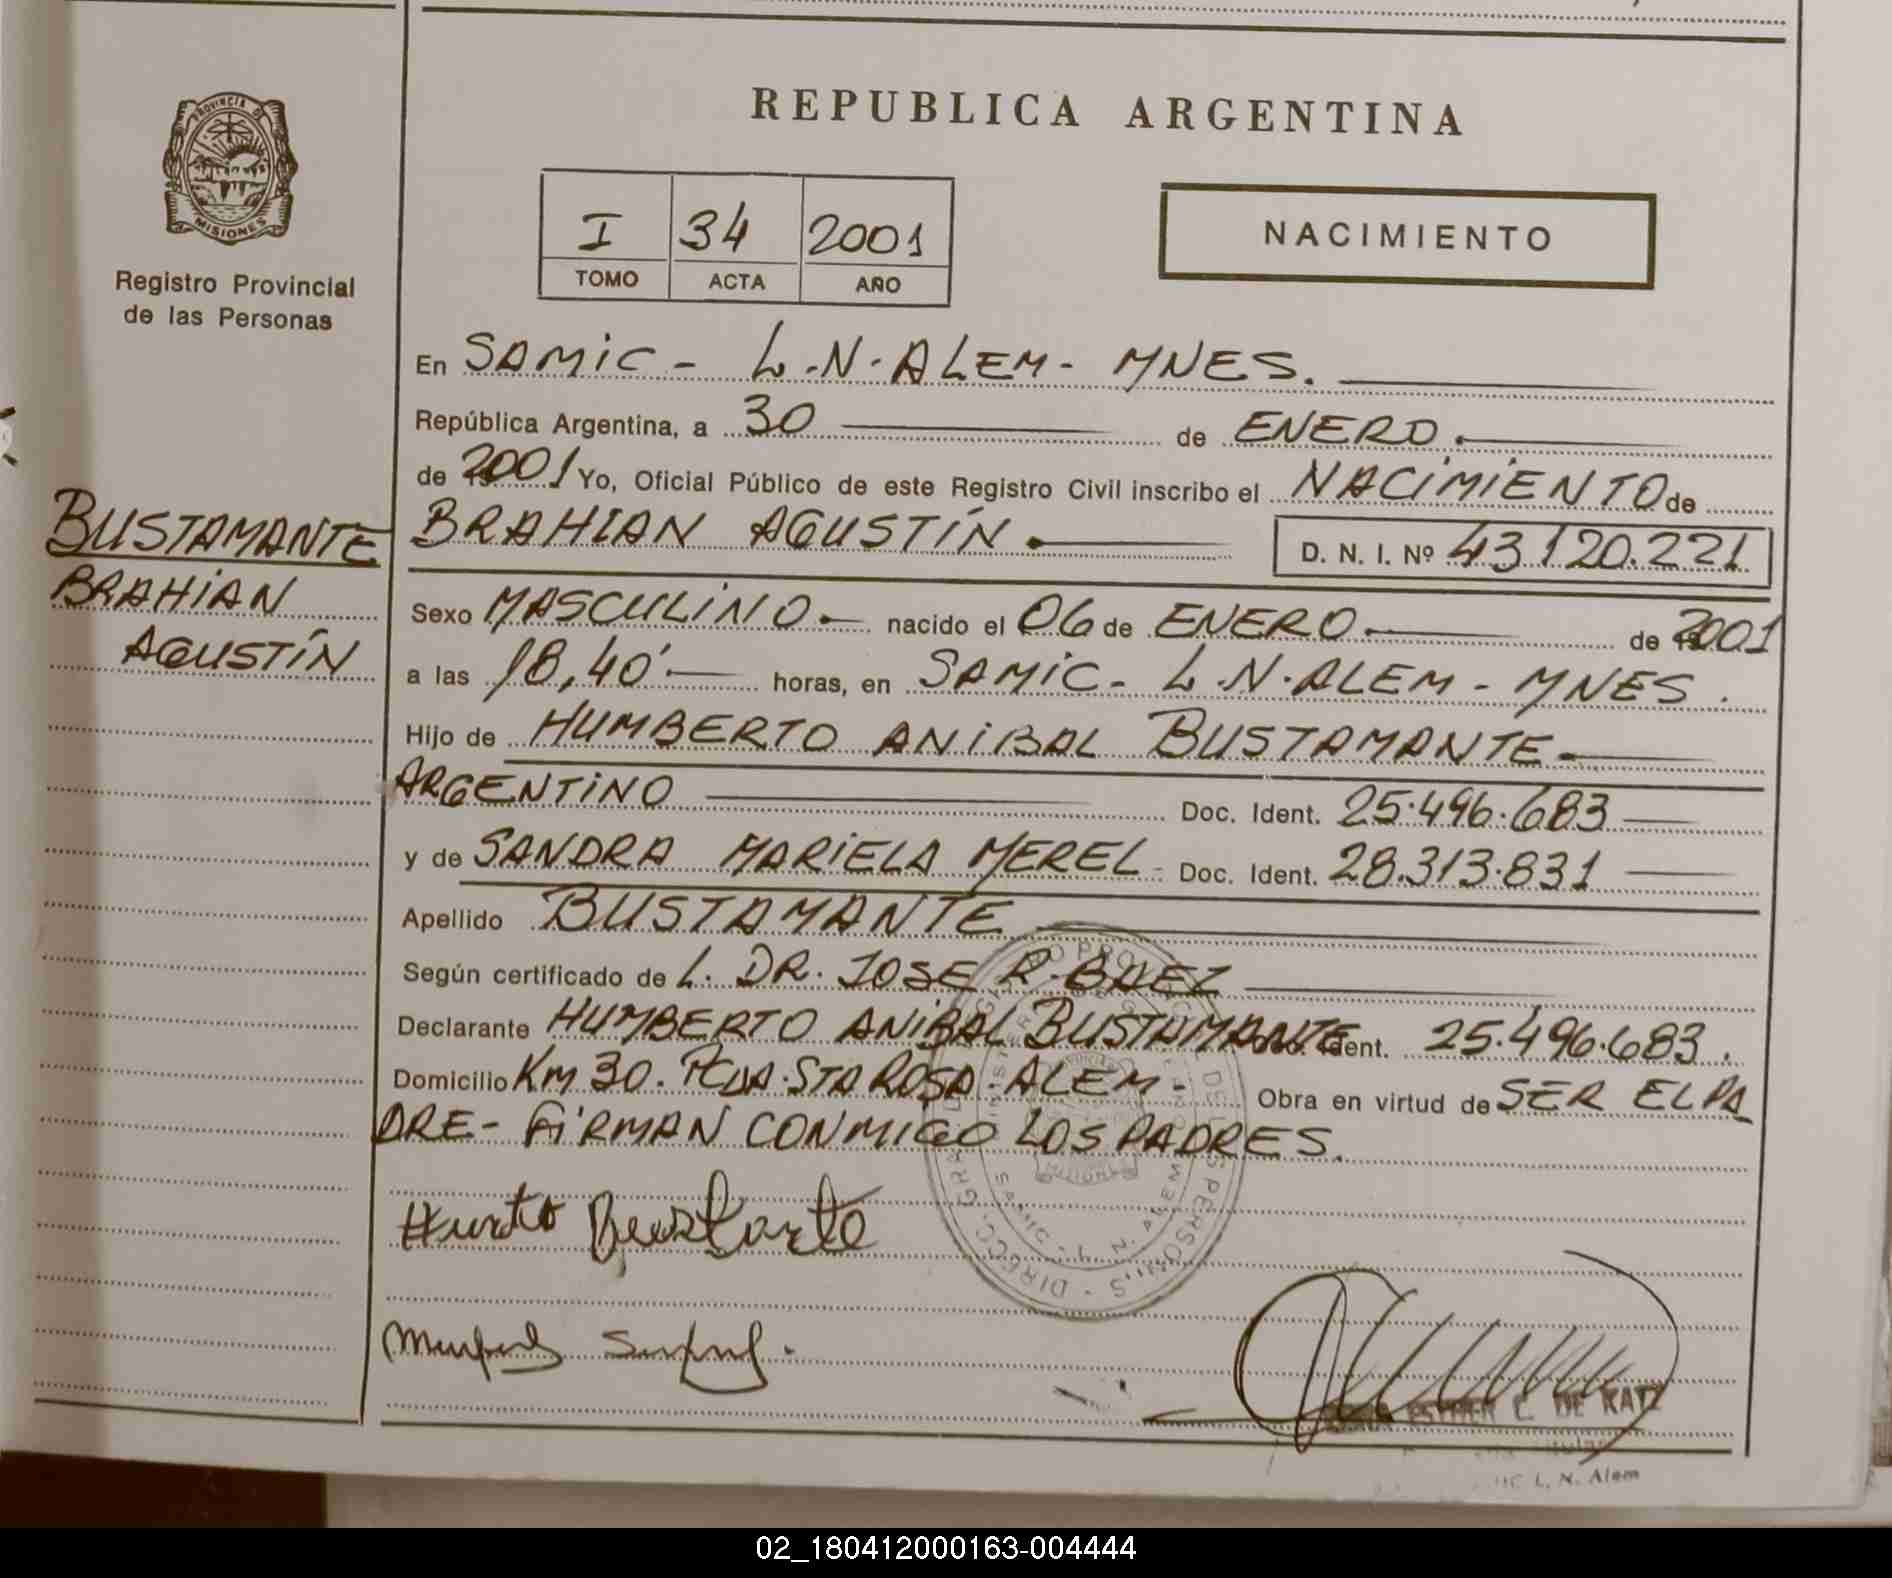 REPUBLICA ARGENTINA
PROVINCIA DE
MISIONES
Registro Provincial
de las Personas
I 34 2001
TOMO ACTA AÑO
NACIMIENTO
En SAMIC - L.N. ALEM - MNES.
República Argentina, a 30 de ENERO.
de 2001 Yo, Oficial Público de este Registro Civil inscribo el NACIMIENTO de
BUSTAMANTE
BRAHIAN
AGUSTÍN
BRAHIAN AGUSTÍN. D. N. I. Nº 43.120.221
Sexo MASCULINO.- nacido el 06 de ENERO de 2001
a las 18,40' horas, en SAMIC - L.N. ALEM - MNES.
Hijo de HUMBERTO ANIBAL BUSTAMANTE.
ARGENTINO Doc. Ident. 25.496.683
y de SANDRA MARIELA MEREL - Doc. Ident. 28.313.831
Apellido BUSTAMANTE
Según certificado de L. DR. JOSE R. BAEZ
Declarante HUMBERTO ANIBAL BUSTAMANTE Doc. Ident. 25.496.683.
Domicilio KM 30. PCDA. STA ROSA - ALEM - Obra en virtud de SER EL PA
DRE - FIRMAN CONMIGO LOS PADRES.
ESTHER C. DE KATZ
L. N. Alem
02_180412000163-004444